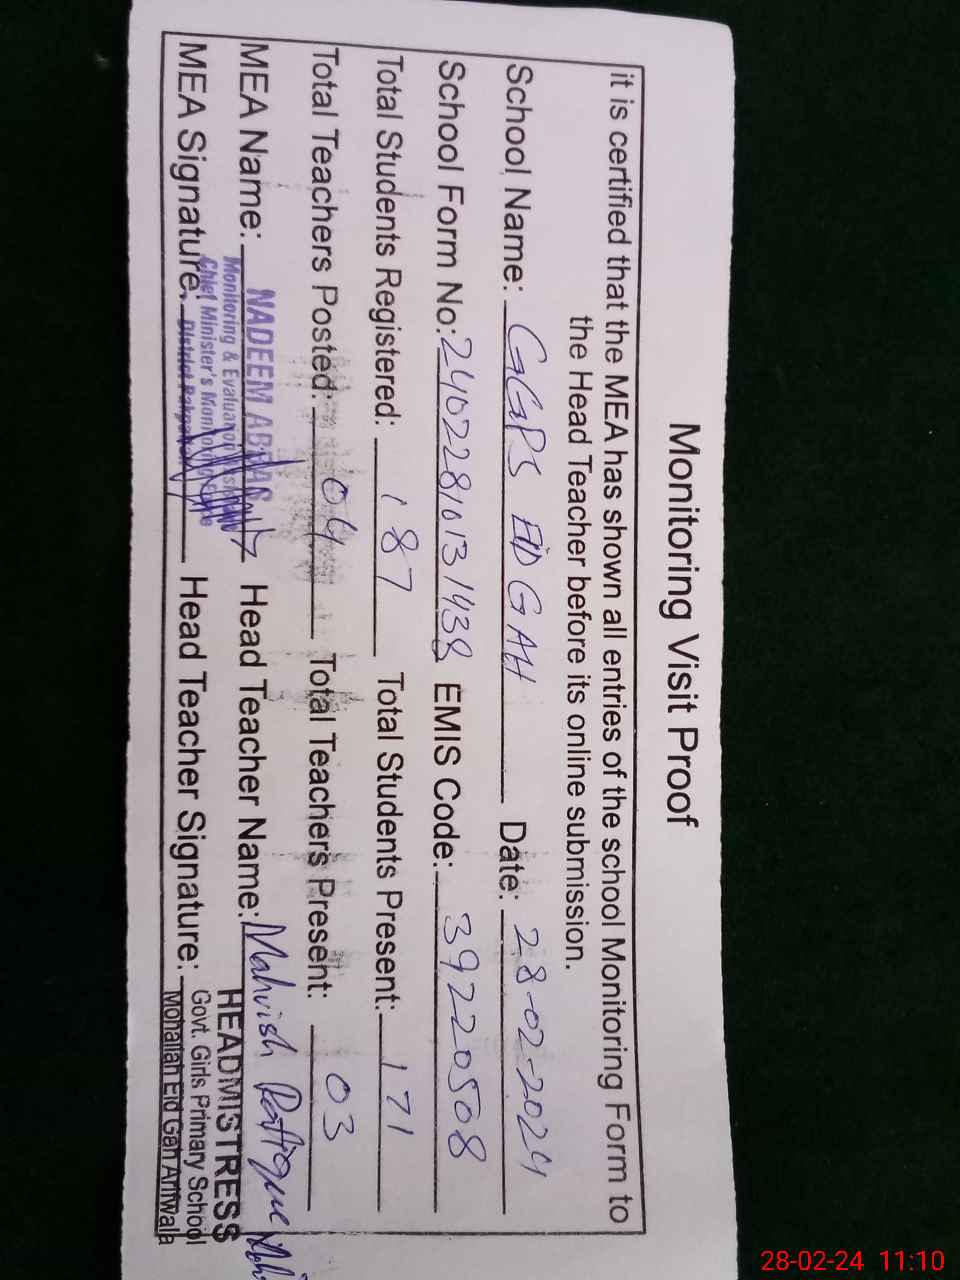 Monitoring Visit Proof
it is certified that the MEA has shown all entries of the school Monitoring Form to
the Head Teacher before its online submission.
School Name: GGPS EID GAH Date: 28-02-2024
School Form No: 24022810131438 EMIS Code: 39220508
Total Students Registered: 187 Total Students Present: 171
Total Teachers Posted: 04 Total Teachers Present: 03
MEA Name: NADEEM Head Teacher Name: Mahvish Rafique
Monitoring & Evaluation
Chief Minister's Monitoring
MEA Signature: District Pakpattan Head Teacher Signature:
HEADMISTRESS
Govt. Girls Primary School
Mohallah Eid Gah Arifwala
28-02-24 11:10